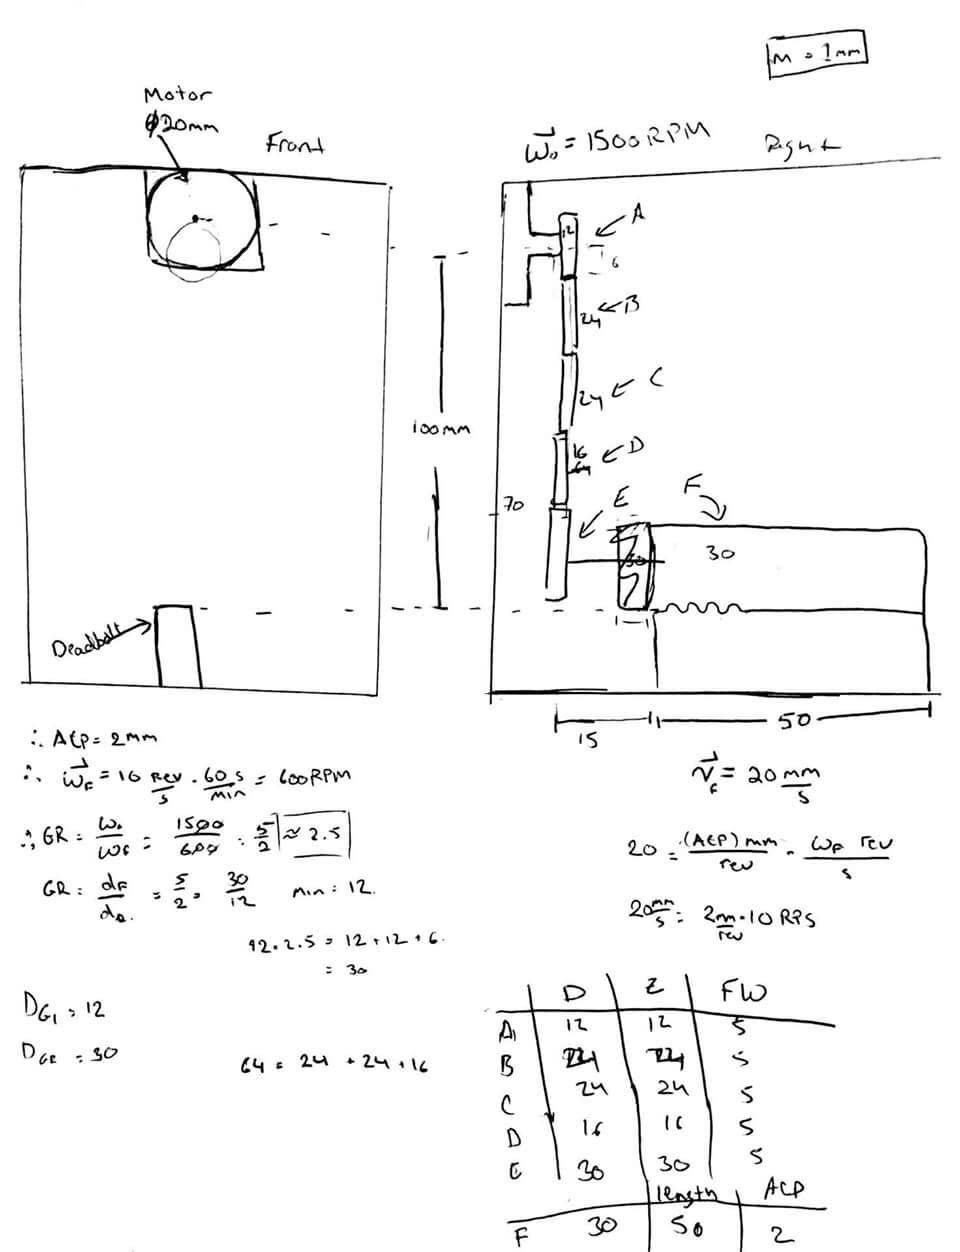 m = 1mm
Motor
Φ20mm
Front
ω₀ = 1500RPM
Right
A
12
6
B
24
C
24
100mm
D
16
70
E
F
30
30
Deadbolt
15
50
∴ ACP = 2mm
∴ ω_F = 10 Rev/s · 60s/min = 600RPM
∴ GR = ω₀/ω_F = 1500/600 = 5/2 ≈ 2.5
GR = d_F/d_o = 5/2 = 30/12 min = 12
12 · 2.5 = 12 + 12 + 6
= 30
D_G1 = 12
D_GE = 30
64 = 24 + 24 + 16
V_F = 20 mm/s
20 = (ACP) mm/rev · ω_F rev/s
20 mm/s = 2m/rev · 10 RPS
D Z FW
A 12 12 5
B 24 24 5
C 24 24 5
D 16 16 5
E 30 30 5
length ACP
F 30 50 2